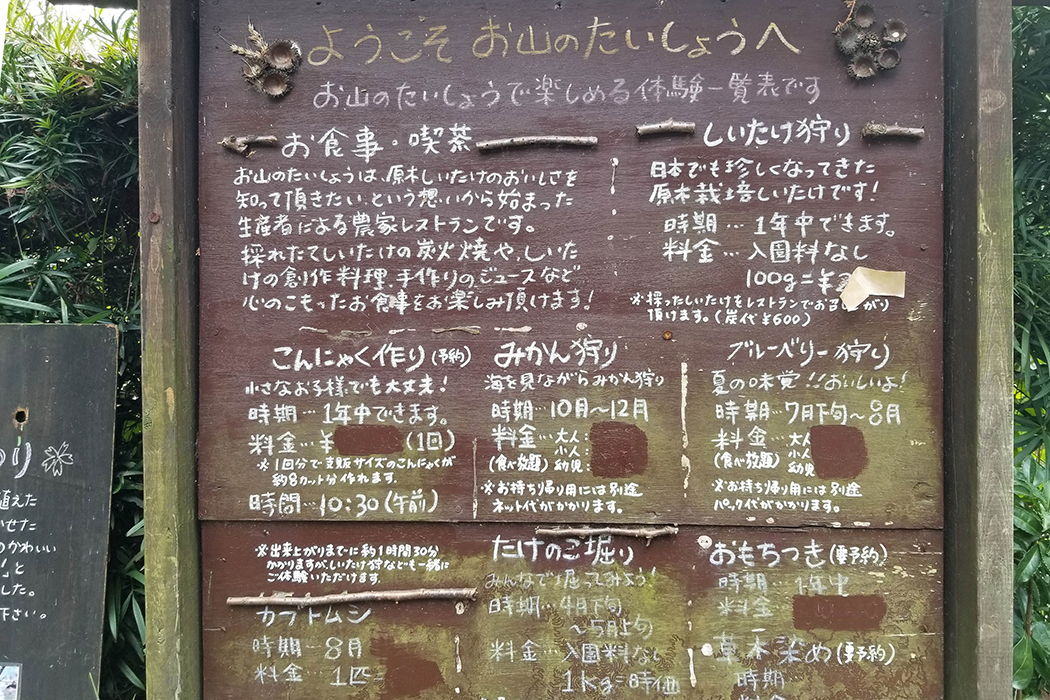 ようこそ お山のたいしょうへ
お山のたいしょうで楽しめる体験一覧表です
お食事・喫茶
お山のたいしょうは、原木しいたけのおいしさを
知って頂きたい、という想いから始まった
生産者による農家レストランです。
採れたてしいたけの炭火焼や、しいた
けの創作料理、手作りのジュースなど
心のこもったお食事をお楽しみ頂けます!
しいたけ狩り
日本でも珍しくなってきた
原木栽培しいたけです!
時期…1年中できます。
料金…入園料なし
100g=¥
※採ったしいたけをレストランでお召し上がり
頂けます。(炭代¥600)
こんにゃく作り(予約)
小さなお子様でも大丈夫!
時期…1年中できます。
料金…¥ (1回)
※1回分で市販サイズのこんにゃくが
約8カット分作れます。
時間…10:30(午前)
※出来上がりまでに約1時間30分
かかりますが、しいたけ狩なども一緒に
ご体験いただけます。
みかん狩り
海を見ながらみかん狩り
時期…10月〜12月
料金…大人:
小人:
(食べ放題) 幼児:
※お持ち帰り用には別途
ネット代がかかります。
ブルーベリー狩り
夏の味覚!!おいしいよ!
時期…7月下旬〜8月
料金…大人
小人
(食べ放題) 幼児
※お持ち帰り用には別途
パック代がかかります。
カブトムシ
時期…8月
料金…1匹
たけのこ堀り
みんなで堀ってみよう!
時期…4月下旬
〜5月上旬
料金…入園料なし
1kg=時価
おもちつき(要予約)
時期…1年中
料金
草木染め(要予約)
時期…
り
植えた
かせた
のかわいい
と
した。
下さい。